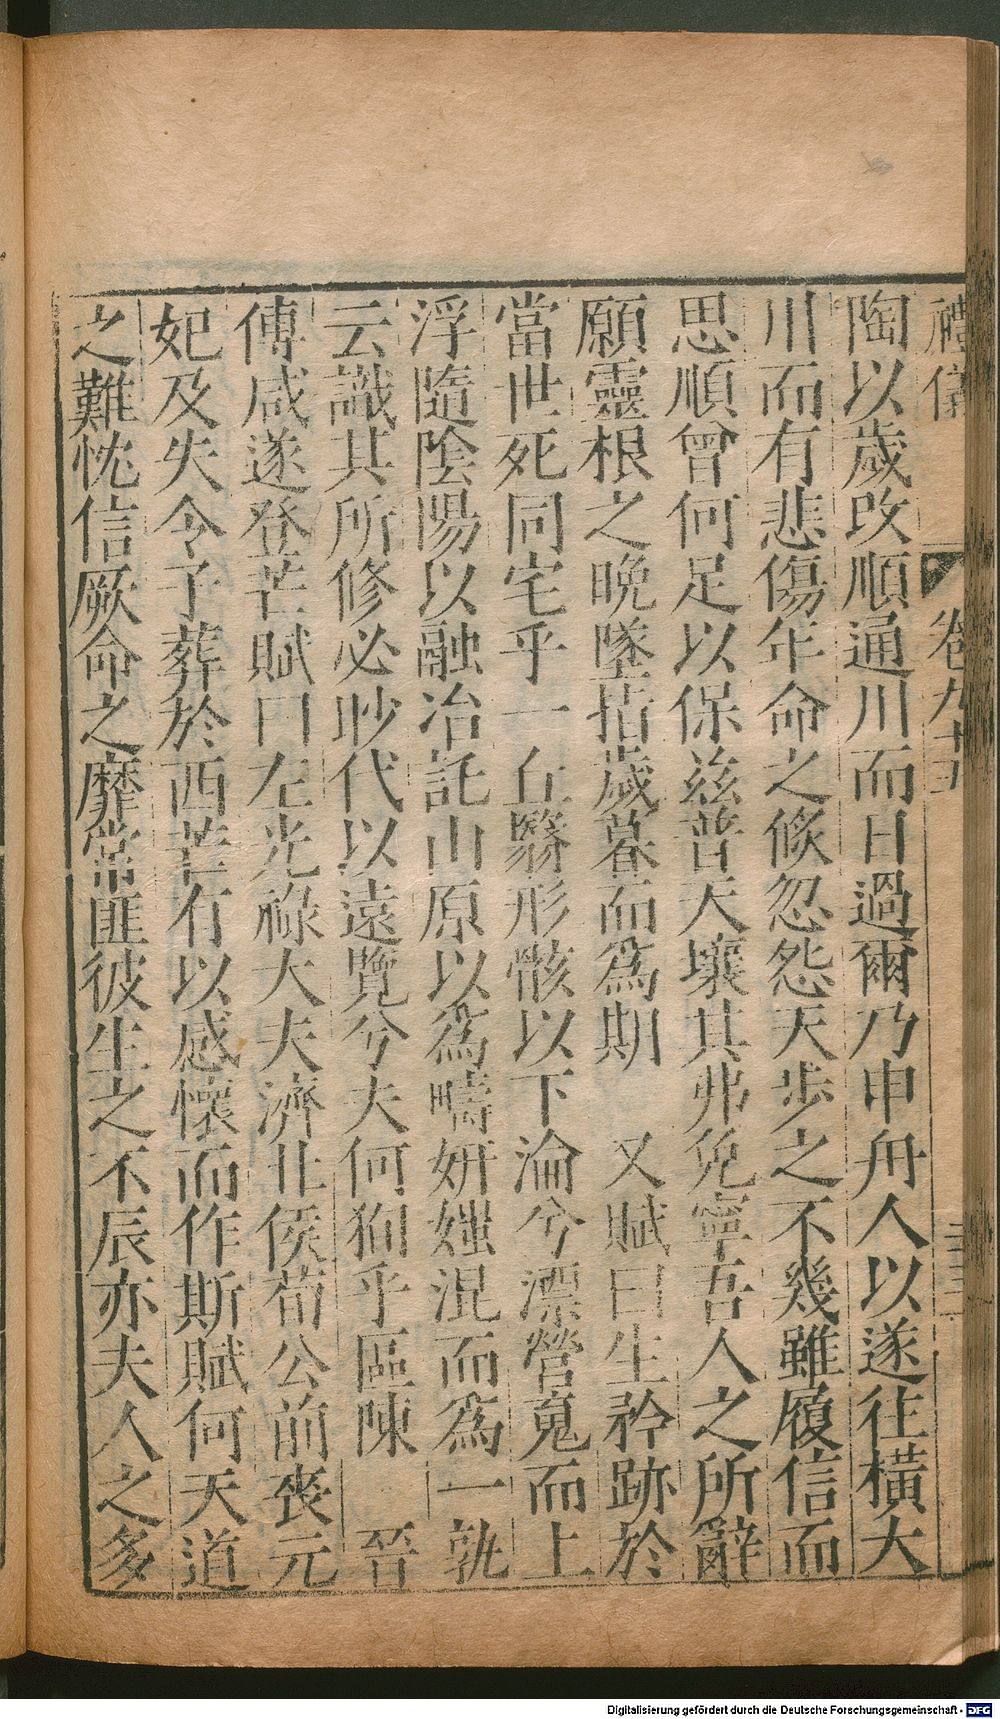 禮儀 卷九十五
陶以歲改順通川而日過爾乃申舟人以遂往橫大
川而有悲傷年命之倏忽怨天步之不幾雖履信而
思順曾何足以保茲普天壤其弗免寧吾人之所辭
願靈根之晚墜指歲暮而爲期　又賦曰生矜跡於
當世死同宅乎一丘翳形骸以下淪兮漂營䰟而上
浮隨陰陽以融冶託山原以爲疇妍媸混而爲一孰
云識其所修必眇代以遠覽兮夫何徇乎區陳　晉
傅咸遂登芒賦曰左光祿大夫濟北侯荀公前喪元
妃及失令子葬於西芒有以感懷而作斯賦何天道
之難忱信厥命之靡常匪彼生之不辰亦夫人之多
Digitalisierung gefördert durch die Deutsche Forschungsgemeinschaft - DFG